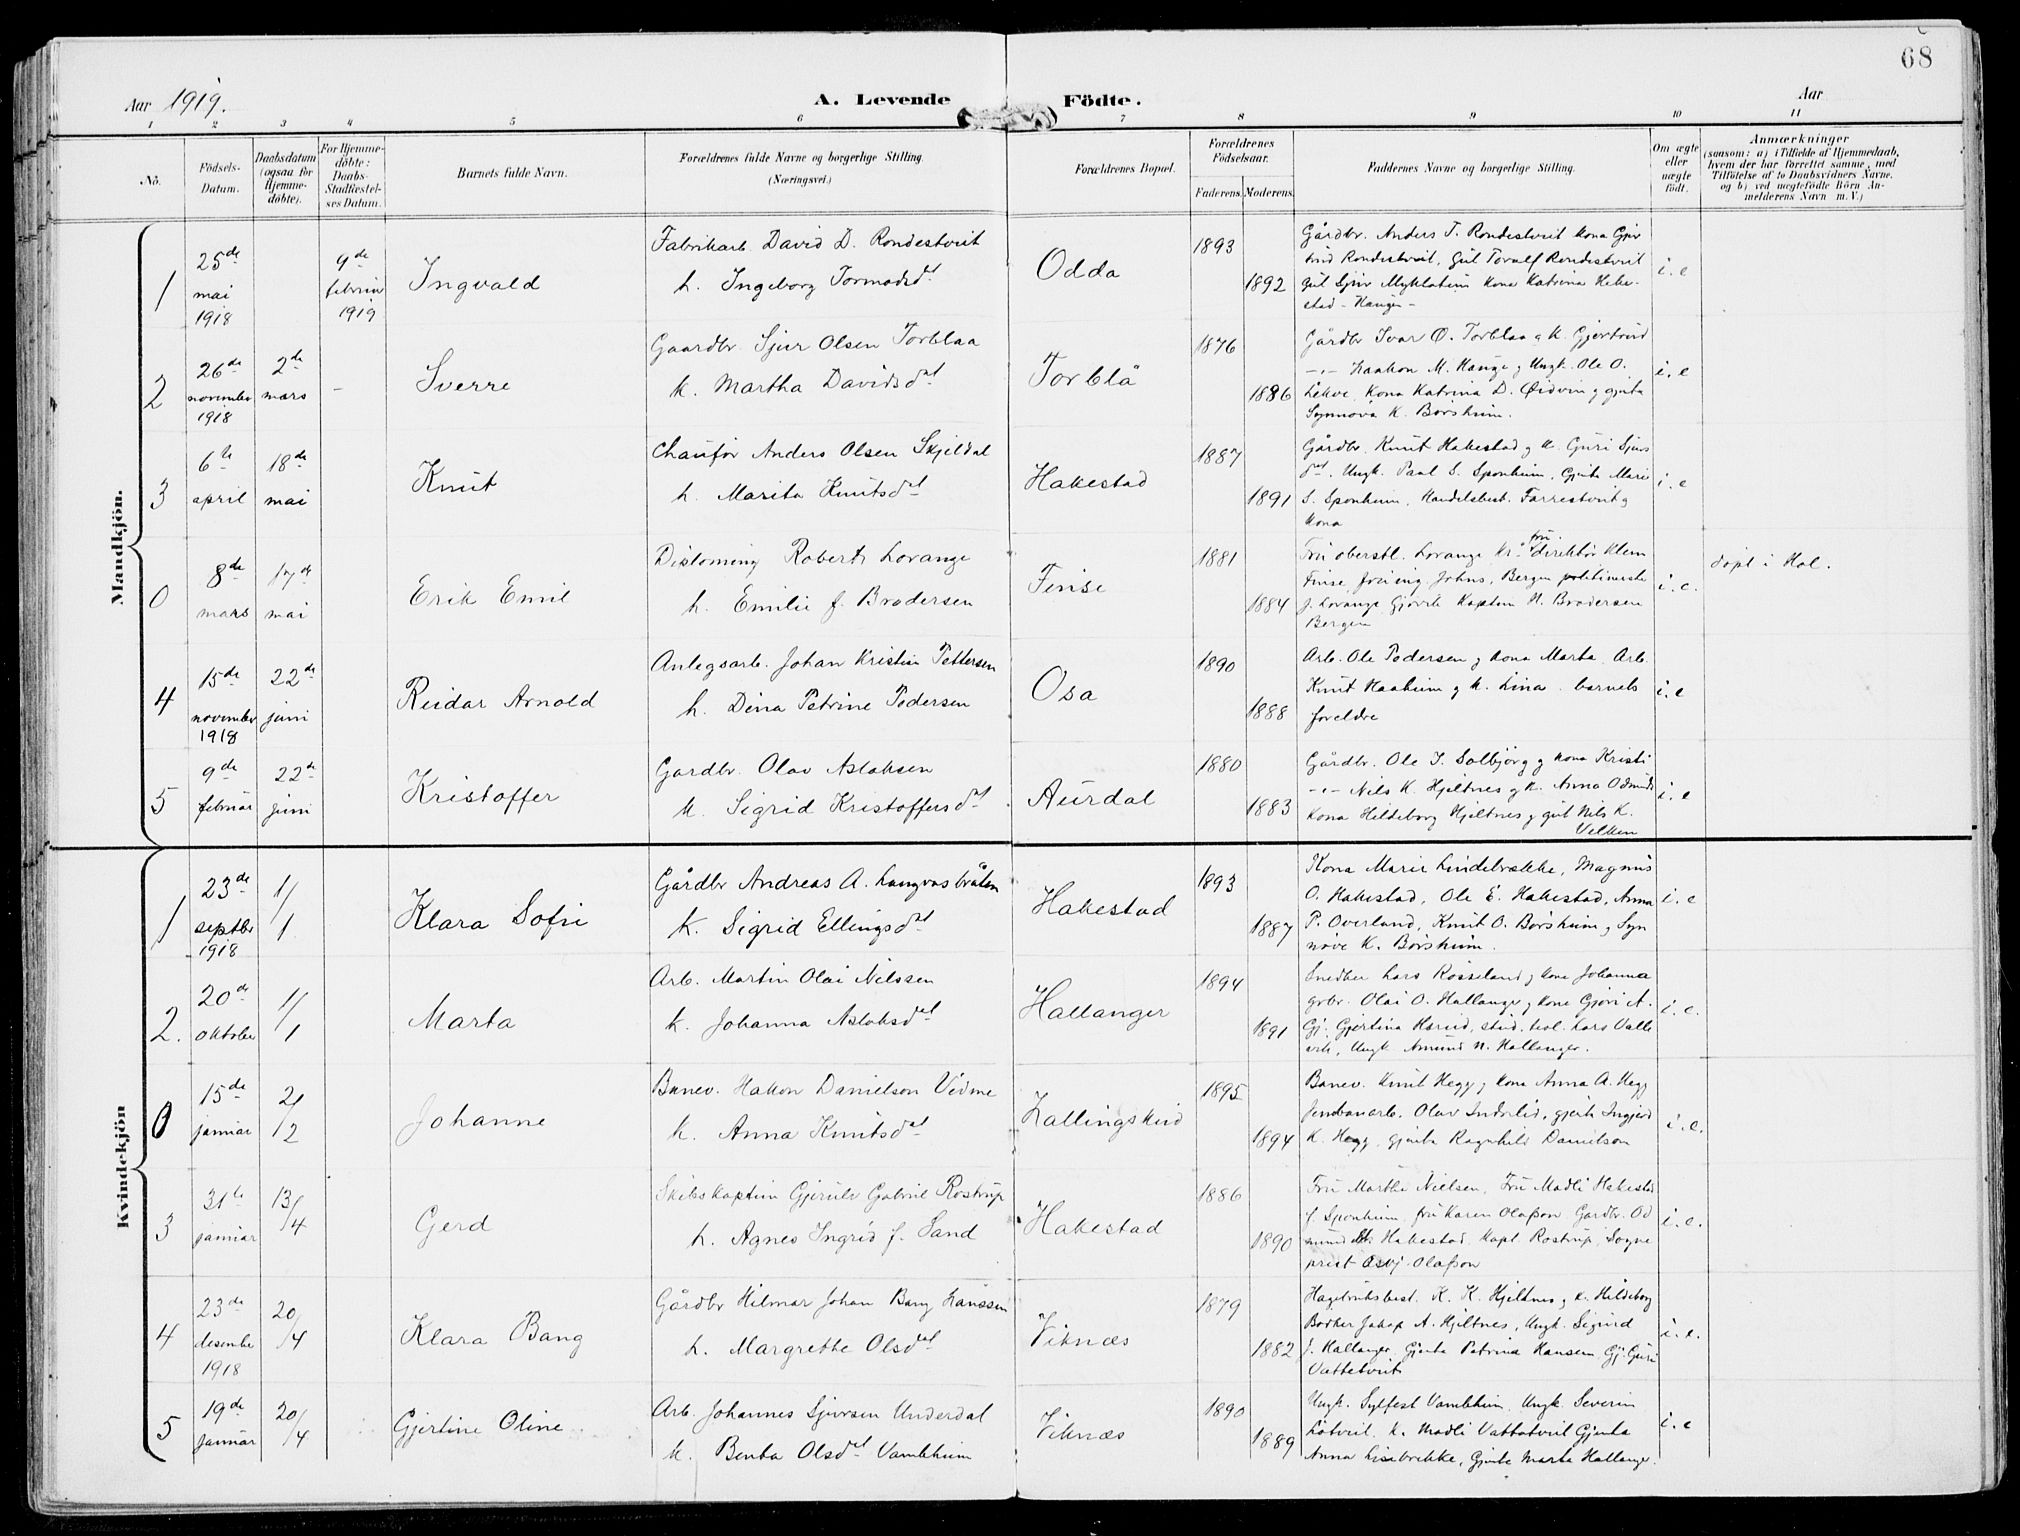 68
Aar 1919.
A. Levende Födte.
Aar
1 2 3 4 5 6 7 8 9 10 11
No.
Födsels-Datum.
Daabsdatum (ogsaa for Hjemme-döbte).
For Hjemme-döbte: Daabs-Stadfæstel-ses Datum.
Barnets fulde Navn.
Forældrenes fulde Navne og borgerlige Stilling.
(Næringsvei.)
Forældrenes Bopæl.
Forældrenes Födselsaar.
Faderens. Moderens.
Faddernes Navne og borgerlige Stilling.
Om ægte eller uægte födt.
Anmærkninger
(saasom: a) i Tilfælde af Hjemmedaab,
hvem der har forrettet samme, med
Tilföielse af to Daabsvidners Navne,
og b) ved uægtefödte Börn An-
melderens Navn m.V.)
Mandkjön.
1 25de mai 1918 9de februar 1919 Ingvald
Fabrikarb. David D. Rondestveit
h. Ingeborg Tormodsdt
Odda 1893 1892
Gårdbr. Anders T. Rondestveit kona Gjer
trud Rondestveit, Gut Toralf Rondestveit
gut Sjur Myklatun kona Katrina Heke-
stad - Haugen -
i. e
2 26de november 1918 2de mars - Sverre
Gaardbr. Sjur Olsen Torblaa
k. Martha Davidsdt
Torblå 1876 1886
Gårdbr Ivar O. Torblaa g k. Gjertrud
-"- Haakon M. Hauge g Ungk. Ole O.
Lekve. Kona Katrina D. Øidvin g gjenta
Synnøva K. Børsheim.
i. e
3 6te april 18de mai Knut
Chaufør Anders Olsen Skjeldal
h. Marita Knutsdt
Hakestad 1887 1891
Gårdbr. Knut Hakestad g k. Guri Sjurs
dt. Ungk. Paal S. Sponheim, Gjenta Mari
S. Sponheim, Handelsbest. Farrestveit g
kona
i. e
0 8de mars 17de mai Erik Emil
Diploming Robert Lorange
h. Emilie f. Brodersen
Finse 1881 1884
Fru oberstl. Lorange Kr.a fru direktør Klem
Finse frøi ing. Johns, Bergen politimeste
J. Lorange Gjøvik Kaptein H. Brodersen
Bergen
i. e.
døpt i Hol.
4 15de november 1918 22de juni Reidar Arnold
Anlegsarb. Johan Kristian Pettersen
h. Dina Petrine Pedersen
Osa 1890 1888
Arb. Ole Pedersen g kona Marta. Arb.
Knut Haaheim g k. Lina. barnets
foreldre
i. e
5 9de februar 22de juni Kristoffer
Gardbr. Olav Aslaksen
k. Sigrid Kristoffersdt
Aurdal 1880 1883
Gårdbr. Ole I. Solbjørg g kona Kristi
-"- Nils K. Hjeltnes g k. Anna Odmunds
kona Hildeborg Hjeltnes g gut Nils K.
Velken
i. e
Kvindekjön
1 23de septbr 1918 1/1 Klara Sofie
Gårdbr Andreas A. Langvasbråten
k. Sigrid Ellingsdt
Hakestad 1893 1887
Kona Marie Lindebrække, Magnus
O. Hakestad, Ole E. Hakestad, Anna
P. Overland, Knut O. Børsheim g Syn
nøve K. Børsheim.
i. e
2. 20de oktober 1/1 Marta
Arb. Martin Olai Nilssen
k. Johanna Aslaksdt
Hallanger 1894 1891
Snedker Lars Røsseland g kona Johanna
grbr. Olai O. Hallanger g kona Gjøri A.
Gj. Gjertina Hereid, stud. teol. Lars Valle
vik, Ungk Amund N. Hallanger.
i. e.
0 15de januar 2/2 Johanne
Banev. Hakon Danielson Vidme
k. Anna Knutsdt
Hallingskeid 1895 1894
Banev. Knut Hegg g kona Anna A. Hegg
Jernbanarb. Olav Indrelid, gjente Ingjerd
K. Hegg, gjenta Ragnhild Danielson
i. e.
3 31te januar 13/4 Gerd
Skibskaptein Gjerulv Gabriel Rostrup
h. Agnes Ingrid f. Sand
Hakestad 1886 1890
Fru Marthe Nielsen, Fru Madli Hakestad
f. Sponheim, fru Karen Olafson Gardbr. Od
mund St. Hakestad, Kapt Rostrup, Sogne
prest Asbj. Olafson
i. e.
4 23de desembe 1918 20/4 Klara Bang
Gårdbr Hilmar Johan Bang Hanssen
h. Margrethe Olsdt
Viknæs 1879 1882
Hagebruksbest. K. K. Hjeltnes g k. Hildeborg
Bøtker Jakop A. Hjeltnes, Ungk. Sigurd
J. Hallanger, Gjenta Petrina Hansem, Gj. Guri
Vattetveit
i. e.
5 19de januar 20/4 Gjertine Oline
Arb. Johannes Sjursen Underdal
k. Benta Olsdt Vambheim
Viknæs 1890 1889
Ungk. Sylfest Vambheim, Ungk. Severin
Løtveit, k. Madli Vattatveit Gjenta
Anna Lisebrekke, Gjenta Marta Hallanger.
i. e